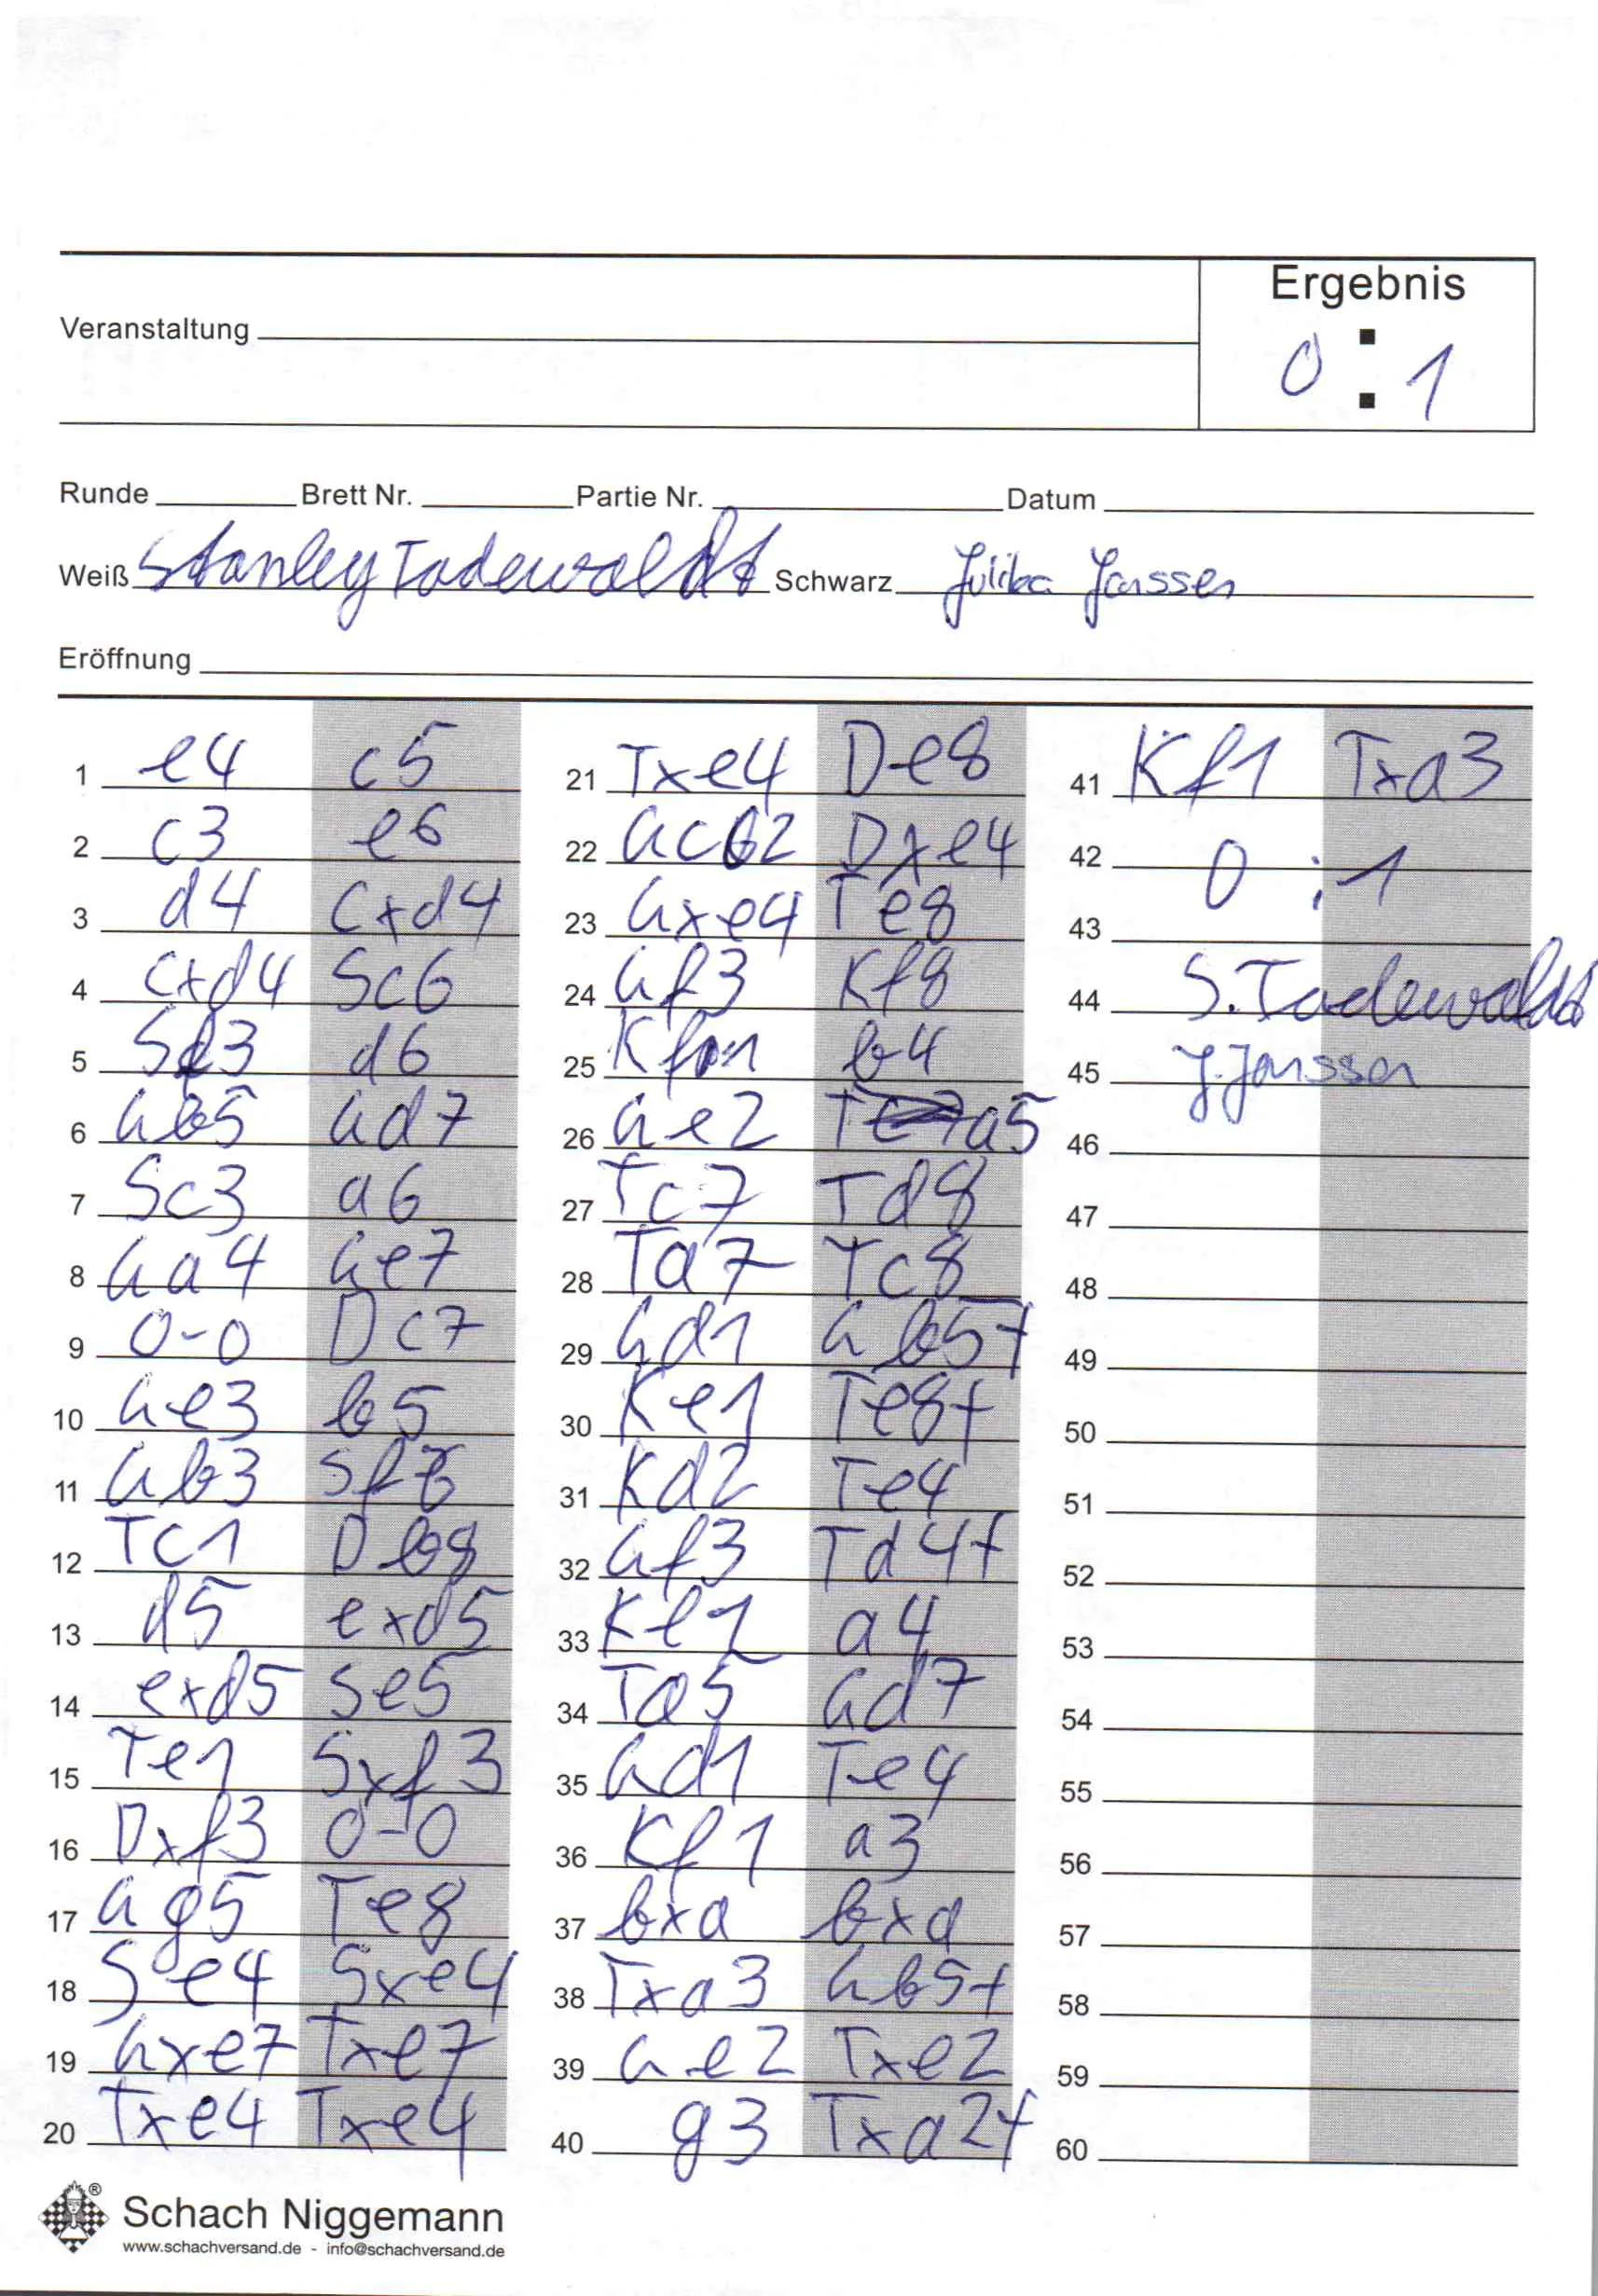 Ergebnis
0 : 1
Veranstaltung
Runde Brett Nr. Partie Nr. Datum
Weiß Stanley Tadewaldt Schwarz Julika Janssen
Eröffnung
1 e4 c5
2 c3 e6
3 d4 cxd4
4 cxd4 Sc6
5 Sf3 d6
6 Lb5 Ld7
7 Sc3 a6
8 La4 Le7
9 0-0 Dc7
10 Le3 b5
11 Lb3 Sf6
12 Tc1 Db8
13 d5 exd5
14 exd5 Se5
15 Te1 Sxf3
16 Dxf3 0-0
17 Lg5 Te8
18 Se4 Sxe4
19 Lxe7 Txe7
20 Txe4 Txe4
21 Txe4 De8
22 Lc2 Dxe4
23 Lxe4 Te8
24 Lf3 Kf8
25 Kf1 b4
26 Le2 a5
27 Tc7 Td8
28 Ta7 Tc8
29 Ld1 Lb5+
30 Ke1 Te8+
31 Kd2 Te4
32 Lf3 Td4+
33 Ke1 a4
34 Ta5 Ld7
35 Ld1 Te4
36 Kf1 a3
37 bxa bxa
38 Txa3 Lb5+
39 Le2 Txe2
40 g3 Txa2+
41 Kf1 Txa3
42 0 : 1
43
44 S. Tadewaldt
45 J. Janssen
46
47
48
49
50
51
52
53
54
55
56
57
58
59
60
Schach Niggemann
www.schachversand.de - info@schachversand.de